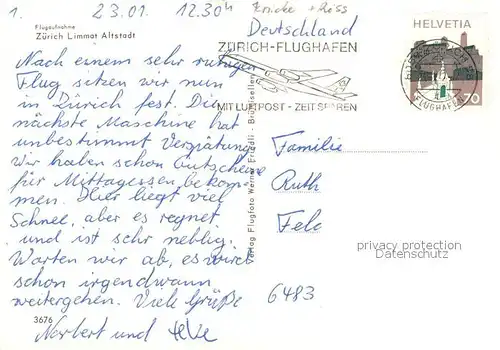 1. 23.01. 12.30h
Deutschland
Flugaufnahme
Zürich Limmat Altstadt
ZÜRICH-FLUGHAFEN
MIT LUFTPOST - ZEIT SPAREN
HELVETIA
FLUGHAFEN
Nach einem sehr ruhigen
Flug sitzen wir nun
in Zürich fest. Die
nächste Maschine hat
unbestimmt Verspätung
Wir haben schon Gutscheine
für Mittagessen bekom-
men. Hier liegt viel
Schnee, aber es regnet
und ist sehr neblig.
Warten wir ab, es wird
schon irgendwann
weitergehen. Viele Grüße
Norbert und
3676
Verlag Flugfoto Werner Friedli - Brüttisellen
Familie
Ruth
6483
privacy protection
Datenschutz